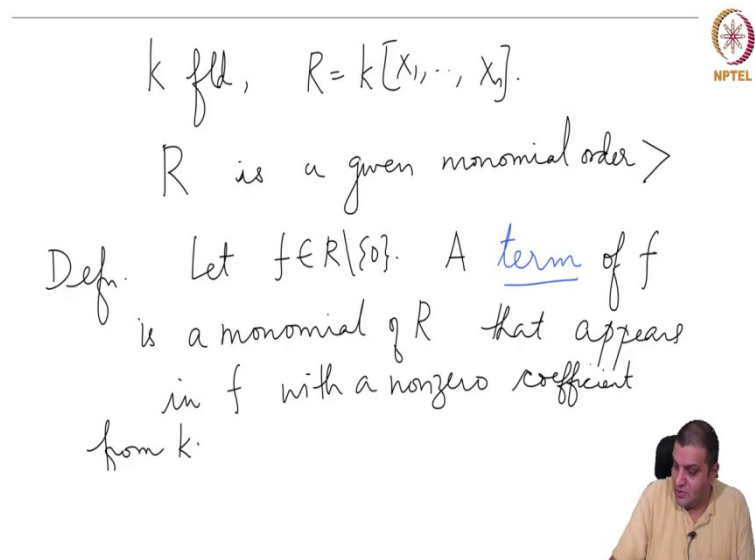 NPTEL
k fld, R = k[X₁, ..., Xₙ].
R is a given monomial order >
Defn. Let f ∈ R\{0}. A term of f
is a monomial of R that appears
in f with a nonzero coefficient
from k.